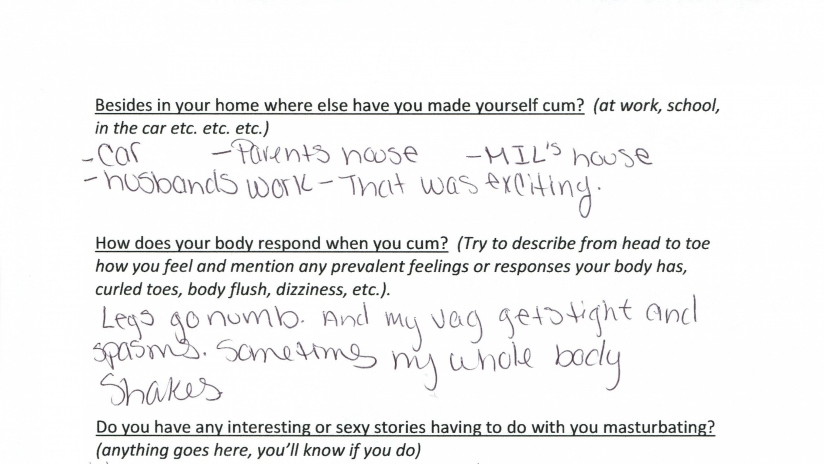 Besides in your home where else have you made yourself cum? (at work, school,
in the car etc. etc. etc.)
-Car -Parents house -MIL's house
-husbands work - That was exciting.
How does your body respond when you cum? (Try to describe from head to toe
how you feel and mention any prevalent feelings or responses your body has,
curled toes, body flush, dizziness, etc.).
Legs go numb. And my vag gets tight and
spasms. Sometimes my whole body
Shakes
Do you have any interesting or sexy stories having to do with you masturbating?
(anything goes here, you'll know if you do)